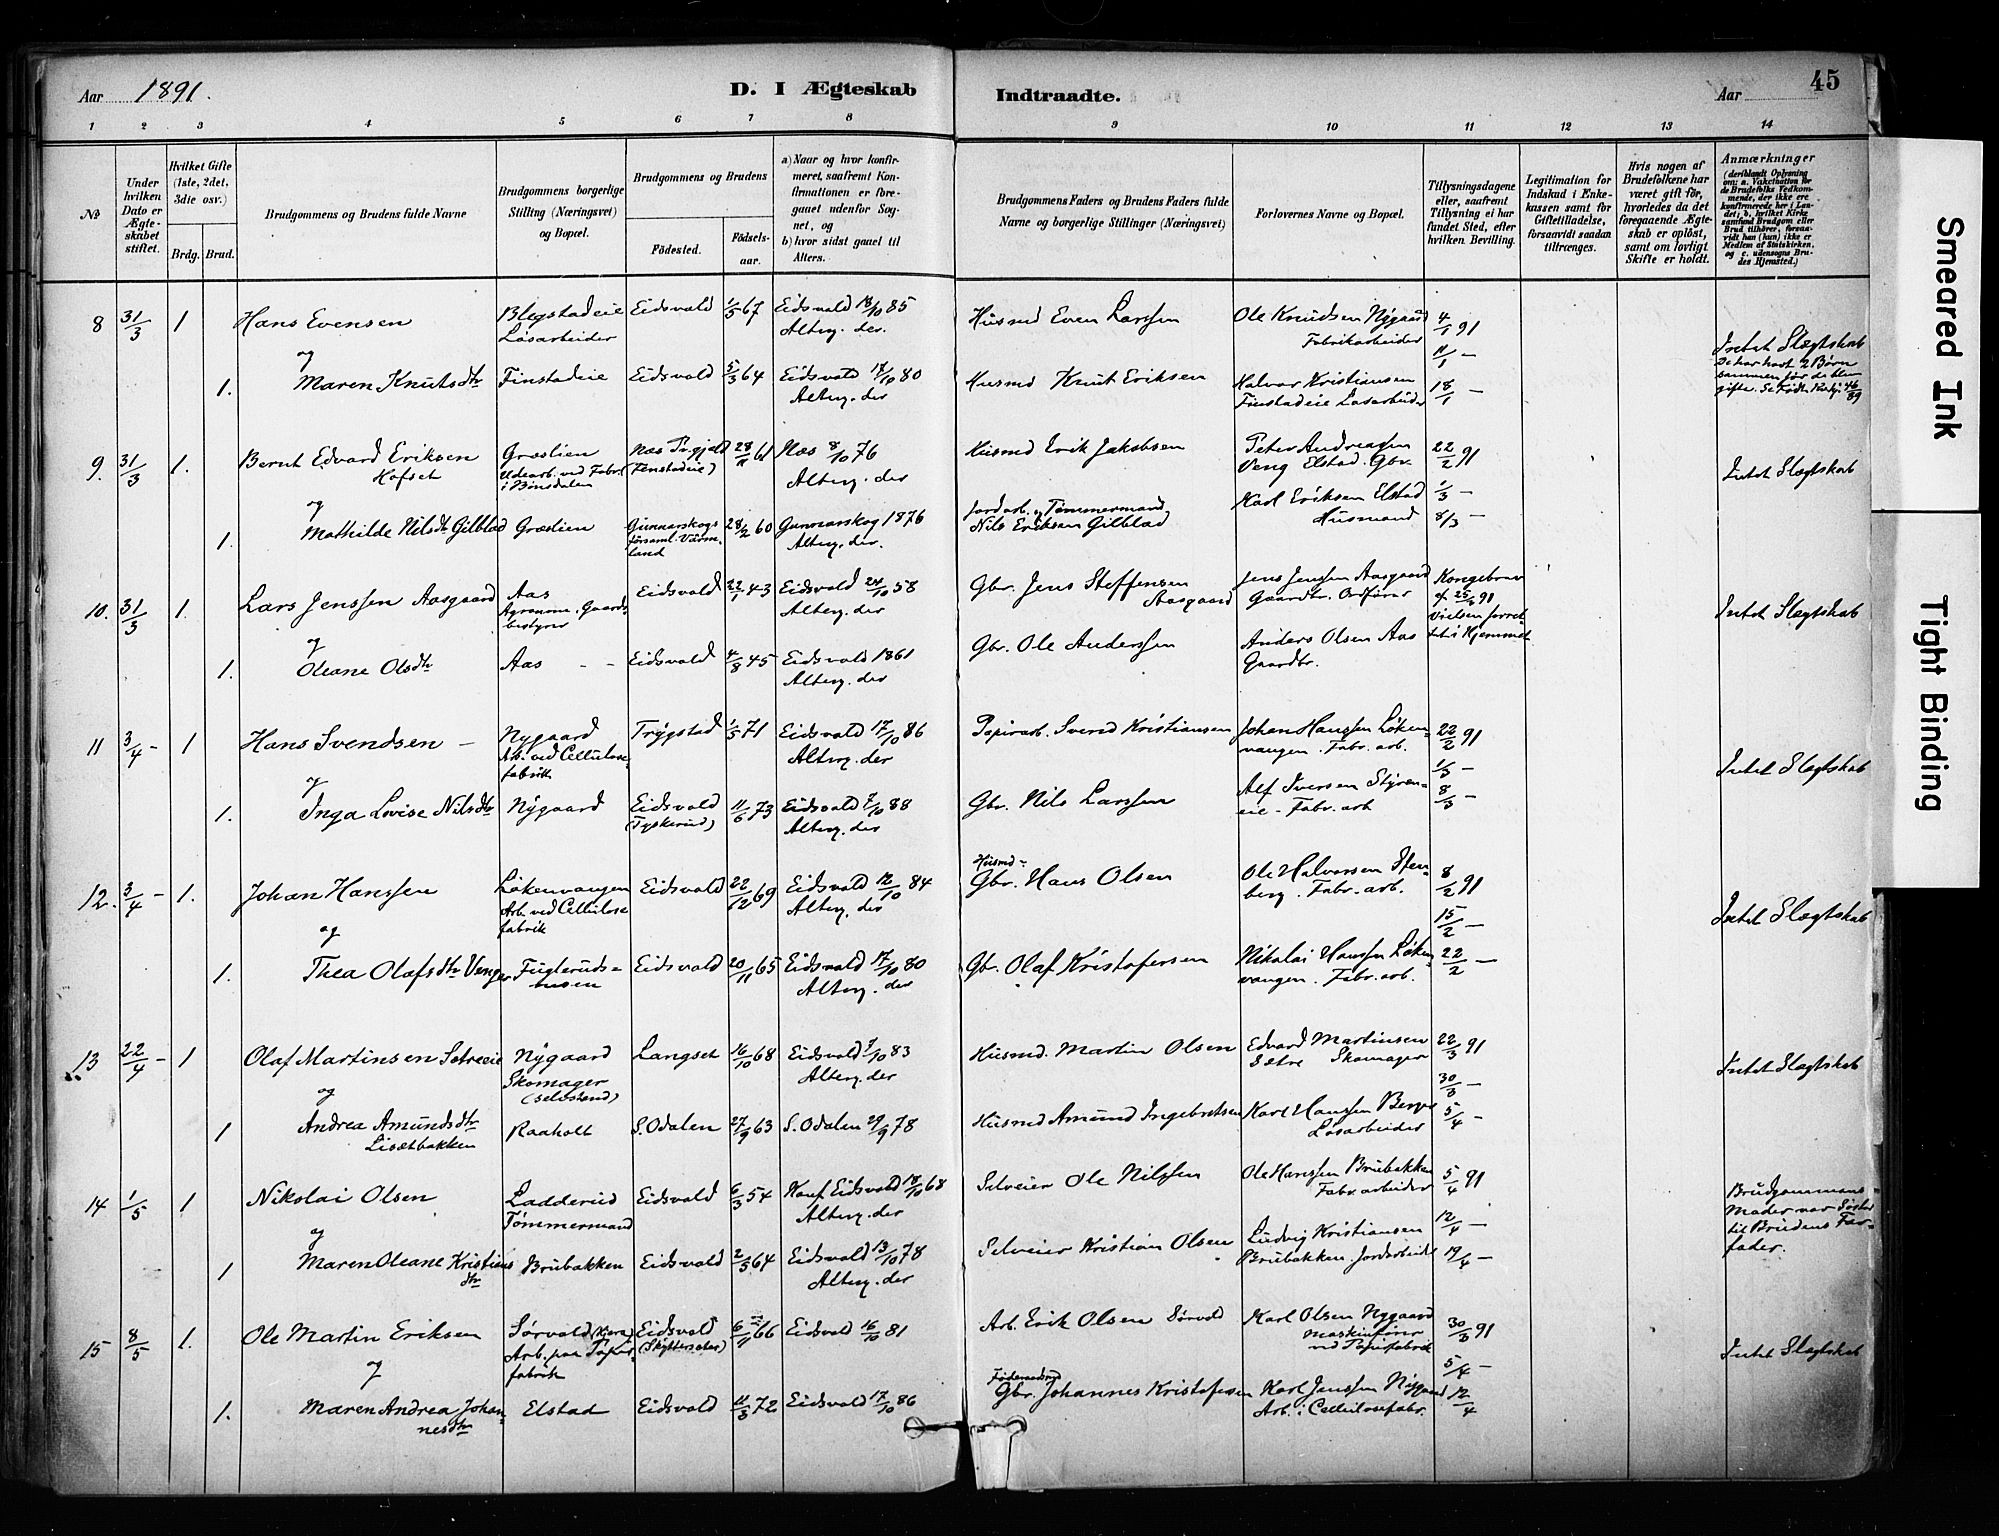 Aar 1891.
D. I Ægteskab
Indtraadte.
Aar
45
1 2 3 4 5 6 7 8 9 10 11 12 13 14
No
Under hvilken Dato er Ægteskabet stiftet.
Hvilket Gifte (1ste, 2det, 3die osv.)
Brdg. Brud.
Brudgommens og Brudens fulde Navne
Brudgommens borgerlige Stilling (Næringsvei) og Bopæl.
Brudgommens og Brudens
Fødested.
Fødselsaar.
a) Naar og hvor konfirmeret, saafremt Konfirmationen er foregaaet udenfor Sognet, og
b) hvor sidst gaaet til Alters.
Brudgommens Faders og Brudens Faders fulde Navne og borgerlige Stillinger (Næringsvei)
Forlovernes Navne og Bopæl.
Tillysningsdagene eller, saafremt Tillysning ei har fundet Sted, efter hvilken Bevilling.
Legitimation for Indskud i Enkekassen samt for Giftetilladelse, forsaavidt saadan tiltrænges.
Hvis nogen af Brudefolkene har været gift før, hvorledes da det foregaaende Ægteskab er opløst, samt om lovligt Skifte er holdt.
Anmærkninger (deriblandt Oplysning om: a. Vakcination for de Brudefolks Vedkommende, der ikke ere konfirmerede her i Landet; b. hvilket Kirkesamfund Brudgom eller Brud tilhører, forsaavidt han (hun) ikke er Medlem af Statskirken, og c. udensogns Brudes Hjemsted.)
8 31/3 1 Hans Evensen Blegstadeie Løsarbeider Eidsvold 1/5 67 Eidsvold 18/10 85 Alterg. der Husmd Even Larssen Ole Knudsen Nygaard Fabrikarbeider 4/1 91 11/1 - Intet Slægtskab
De har havt 2 Børn sammen før de blev gifte.
og
1. Maren Knutsdtr Finstadeie Eidsvold 5/3 64 Eidsvold 17/10 80 Alterg. der Husmd Knut Eriksen Halvor Kristiansen Finstadeie Løsarbeider 18/1 -
9. 31/3 1. Bernt Edvard Eriksen Hofset Græslien Udearb. ved Fabr. i Bønsdalen Næs Prgjeld (Finstadeie) 28/11 61 Næs 8/10 76 Alterg. der Husmd Erik Jakobsen Peter Andreassen Veng Elstad. Gbr. 22/2 91 Intet Slægtskab
og
1. Mathilde Nilsdtr Gilblad Græslien Gunnarskogs församl. Värmland 28/2 60 Gunnarskog 1876 Alterg. der. Jordarb. og Tømmermand Nils Eriksen Gilblad Karl Eriksen Elstad Husmand 1/3 - 8/3 -
10. 31/3 1. Lars Jenssen Aasgaard Aas Agronom. Gaardsbestyrer Eidsvold 22/1 43 Eidsvold 24/10 58 Alterg. der Gbr. Jens Steffensen Aasgaard Jens Jenssen Aasgaard Gaardbr. Ordfører Kongebrev af 25/3 91 Vielsen forrettet i Hjemmet Intet Slægtskab
og
1. Oleane Olsdtr Aas - - Eidsvold 4/8 45 Eidsvold 1861 Alterg. der Gbr. Ole Anderssen Anders Olsen Aas Gaardbr.
11 3/4 - 1 Hans Svendsen - Nygaard Arb. ved Cellulosefabrik Trygstad 1/5 71 Eidsvold 17/10 86 Alterg. der Papirarb. Svend Kristiansen Johan Hanssen Løkenvangen. Fabr. arb. 22/2 91 Intet Slægtskab
og
1. Inga Lovise Nilsdtr Nygaard Eidsvold (Tyskerud) 11/6 73 Eidsvold 7/10 88 Alterg. der Gbr. Nils Larssen Alf Iversen Styrereie - Fabr. arb 1/3 - 8/3 -
12. 3/4 - 1. Johan Hanssen Løkenvangen Arb. ved Cellulosefabrik Eidsvold 22/12 69 Eidsvold 12/10 84 Alterg. der Husmd - Gbr. Hans Olsen Ole Halvorsen Stenberg. Fabr. arb. 8/2 91 15/2 - Intet Slægtskab
og
1. Thea Olafsdtr Venger Fuglerudshusen Eidsvold 20/11 65 Eidsvold 17/10 80 Alterg. der Gbr. Olaf Kristofersen Nikolai Hanssen Løkenvangen. Fabr. arb. 22/2 -
13 22/4 - 1 Olaf Martinsen Sætreeie Nygaard Skomager (selvstænd) Langset 16/10 68 Eidsvold 7/10 83 Alterg. der Husmd. Martin Olsen Edvard Martinsen Sætre Skomager 22/3 91 30/3 - Intet Slægtskab
og
1 Andrea Amundsdtr Lisætbakken Raaholt S. Odalen 27/9 63 S. Odalen 29/9 78 Husmd Amund Ingebretsen Karl Hanssen Berge Løsarbeider 5/4 -
14 1/5 1 Nikolai Olsen Ladderud Tømmermand Eidsvold 6/3 54 Konf. Eidsvold 18/10 68 Alterg. der Selveier Ole Nilssen Ole Hanssen Brubakken Fabr. arbeider 5/4 91 12/4 - Brudgommens Moder var Søster til Brudens Farfader.
og
1 Maren Oleane Kristiansdtr Brubakken Eidsvold 2/5 64 Eidsvold 13/10 78 Alterg. der Selveier Kristian Olsen Ludvig Kristiansen Brubakken Jordarbeider 19/4 -
15 8/5 1. Ole Martin Eriksen Sørvold Arb. paa Papirfabrik Eidsvold 6/11 66 Eidsvold 16/10 81 Arb. Erik Olsen Sørvold Karl Olsen Nygaard Maskinfører ved Papirfabrik 30/3 91 5/4 - Intet Slægtskab
og
1. Maren Andrea Johannesdtr Elstad Eidsvold 11/3 72 Eidsvold 17/10 86 Føderaadsmd Gbr. Johannes Kristofersen Karl Jenssen Nygaard Arb. i Cellulosefabr. 12/4
Smeared Ink
Tight Binding